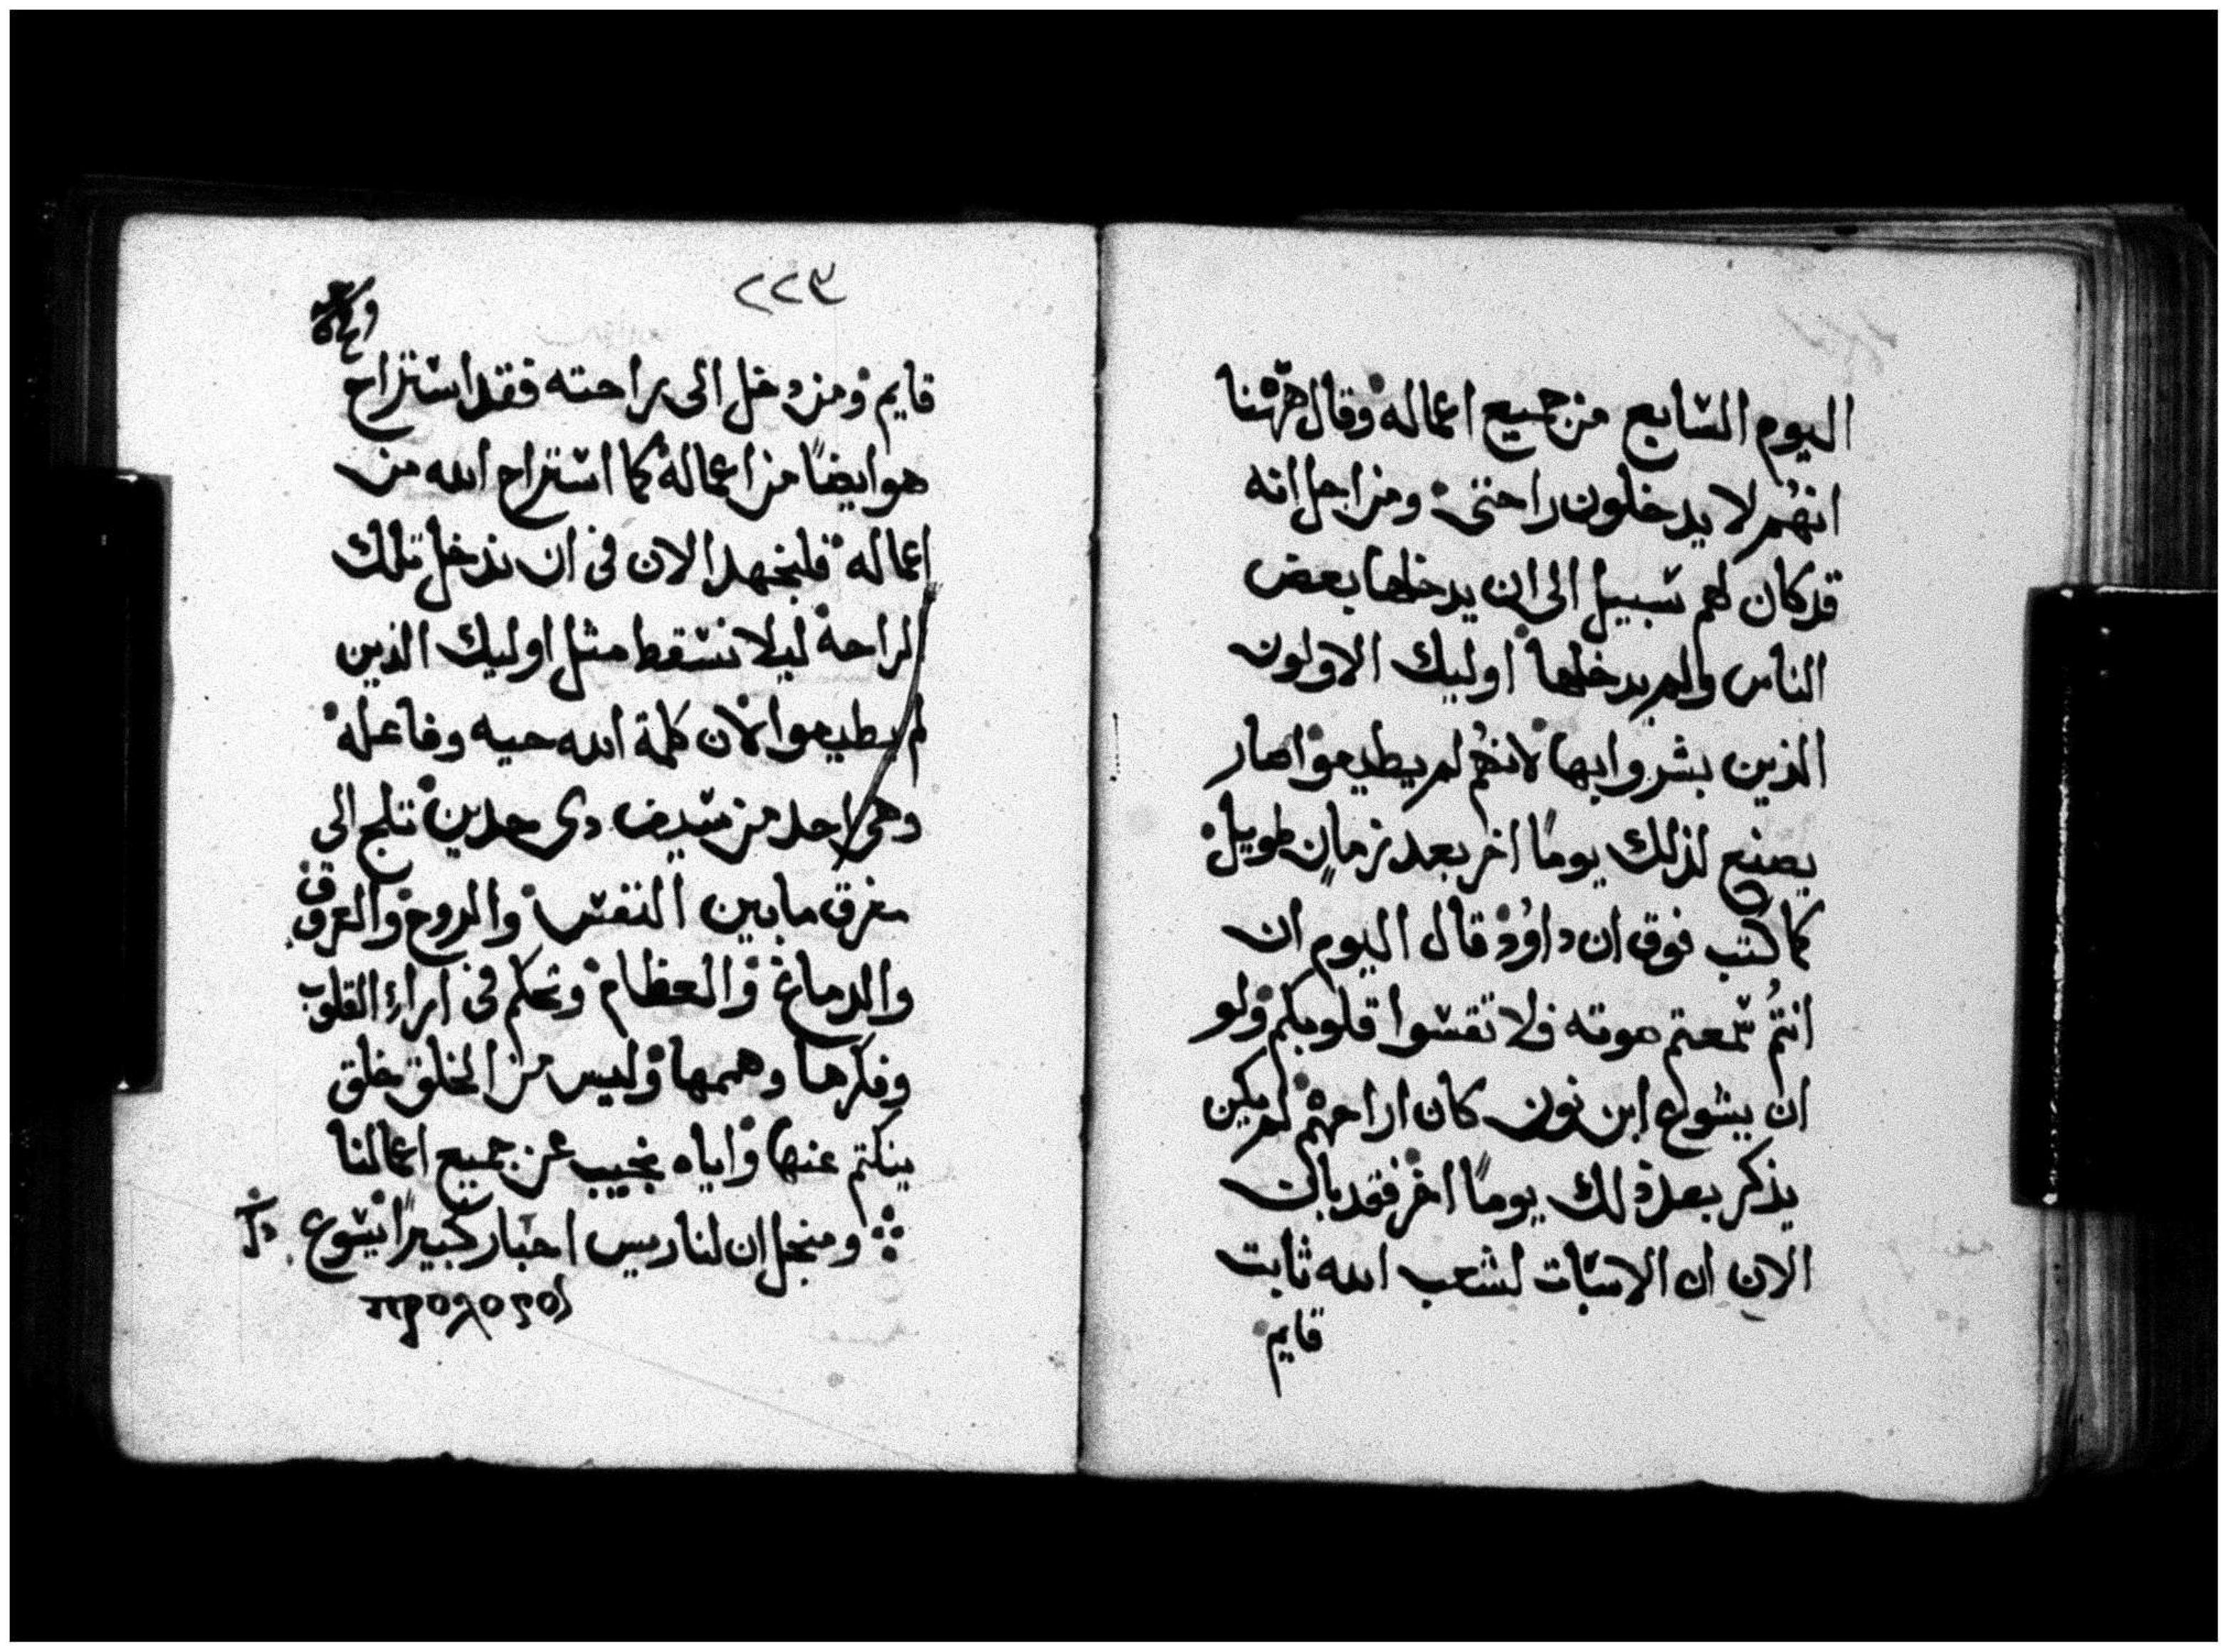 اليوم السابع من جميع اعماله وقال هٰهنا
انهُم لا يدخلون راحتي ومن اجل انه
قد كان لهم سبيل الى ان يدخلها بعض
الناس ولم يدخلها اوليك الاولون
الذين بشروا بها لانهُم لم يطيعوا صار
يصنع لذلك يومًا اخر بعد زمانٍ طويل
كما كتب فوق ان داوُد قال اليوم ان
انتُم سمعتم صوته فلا تقسوا قلوبكم ولو
ان يشوع ابن نون كان اراحهم لم يكن
يذكر بعد ذلك يومًا اخر فقد بان
الان ان الاسبات لشعب الله ثابت
قايم
٢٢٣
قايم ومن دخل الى راحته فقد استراح
هو ايضًا من اعماله كما استراح الله من
اعماله فلنجهد الان في ان ندخل تلك
الراحة ليلا نسقط مثل اوليك الذين
لم يطيعوا لان كلمة الله حيه وفاعله
وهي احد من سيف ذي حدين تلج الى
مفرق مابين النفس والروح والعروق
والدماغ والعظام وتحكم في اراء القلوب
وفكرها وهممها وليس من الخلق خلق
ينكتم عنها واياه نجيب عن جميع اعمالنا
ومنجل ان لنا ريس احبار كبيرًا يشوع